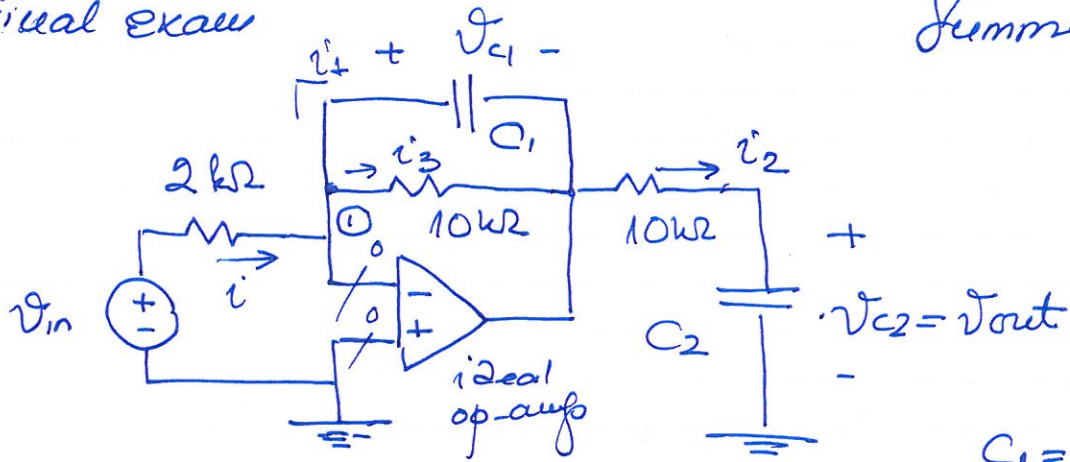 exam
i₁ + V_c1 -
C₁
2 kΩ
→ i₃
→ i₂
① 10kΩ
10kΩ
+
→ i
0
0
V_in
+
-
-
+
C₂
V_c2 = V_out
-
ideal
op-amp
C₁ =